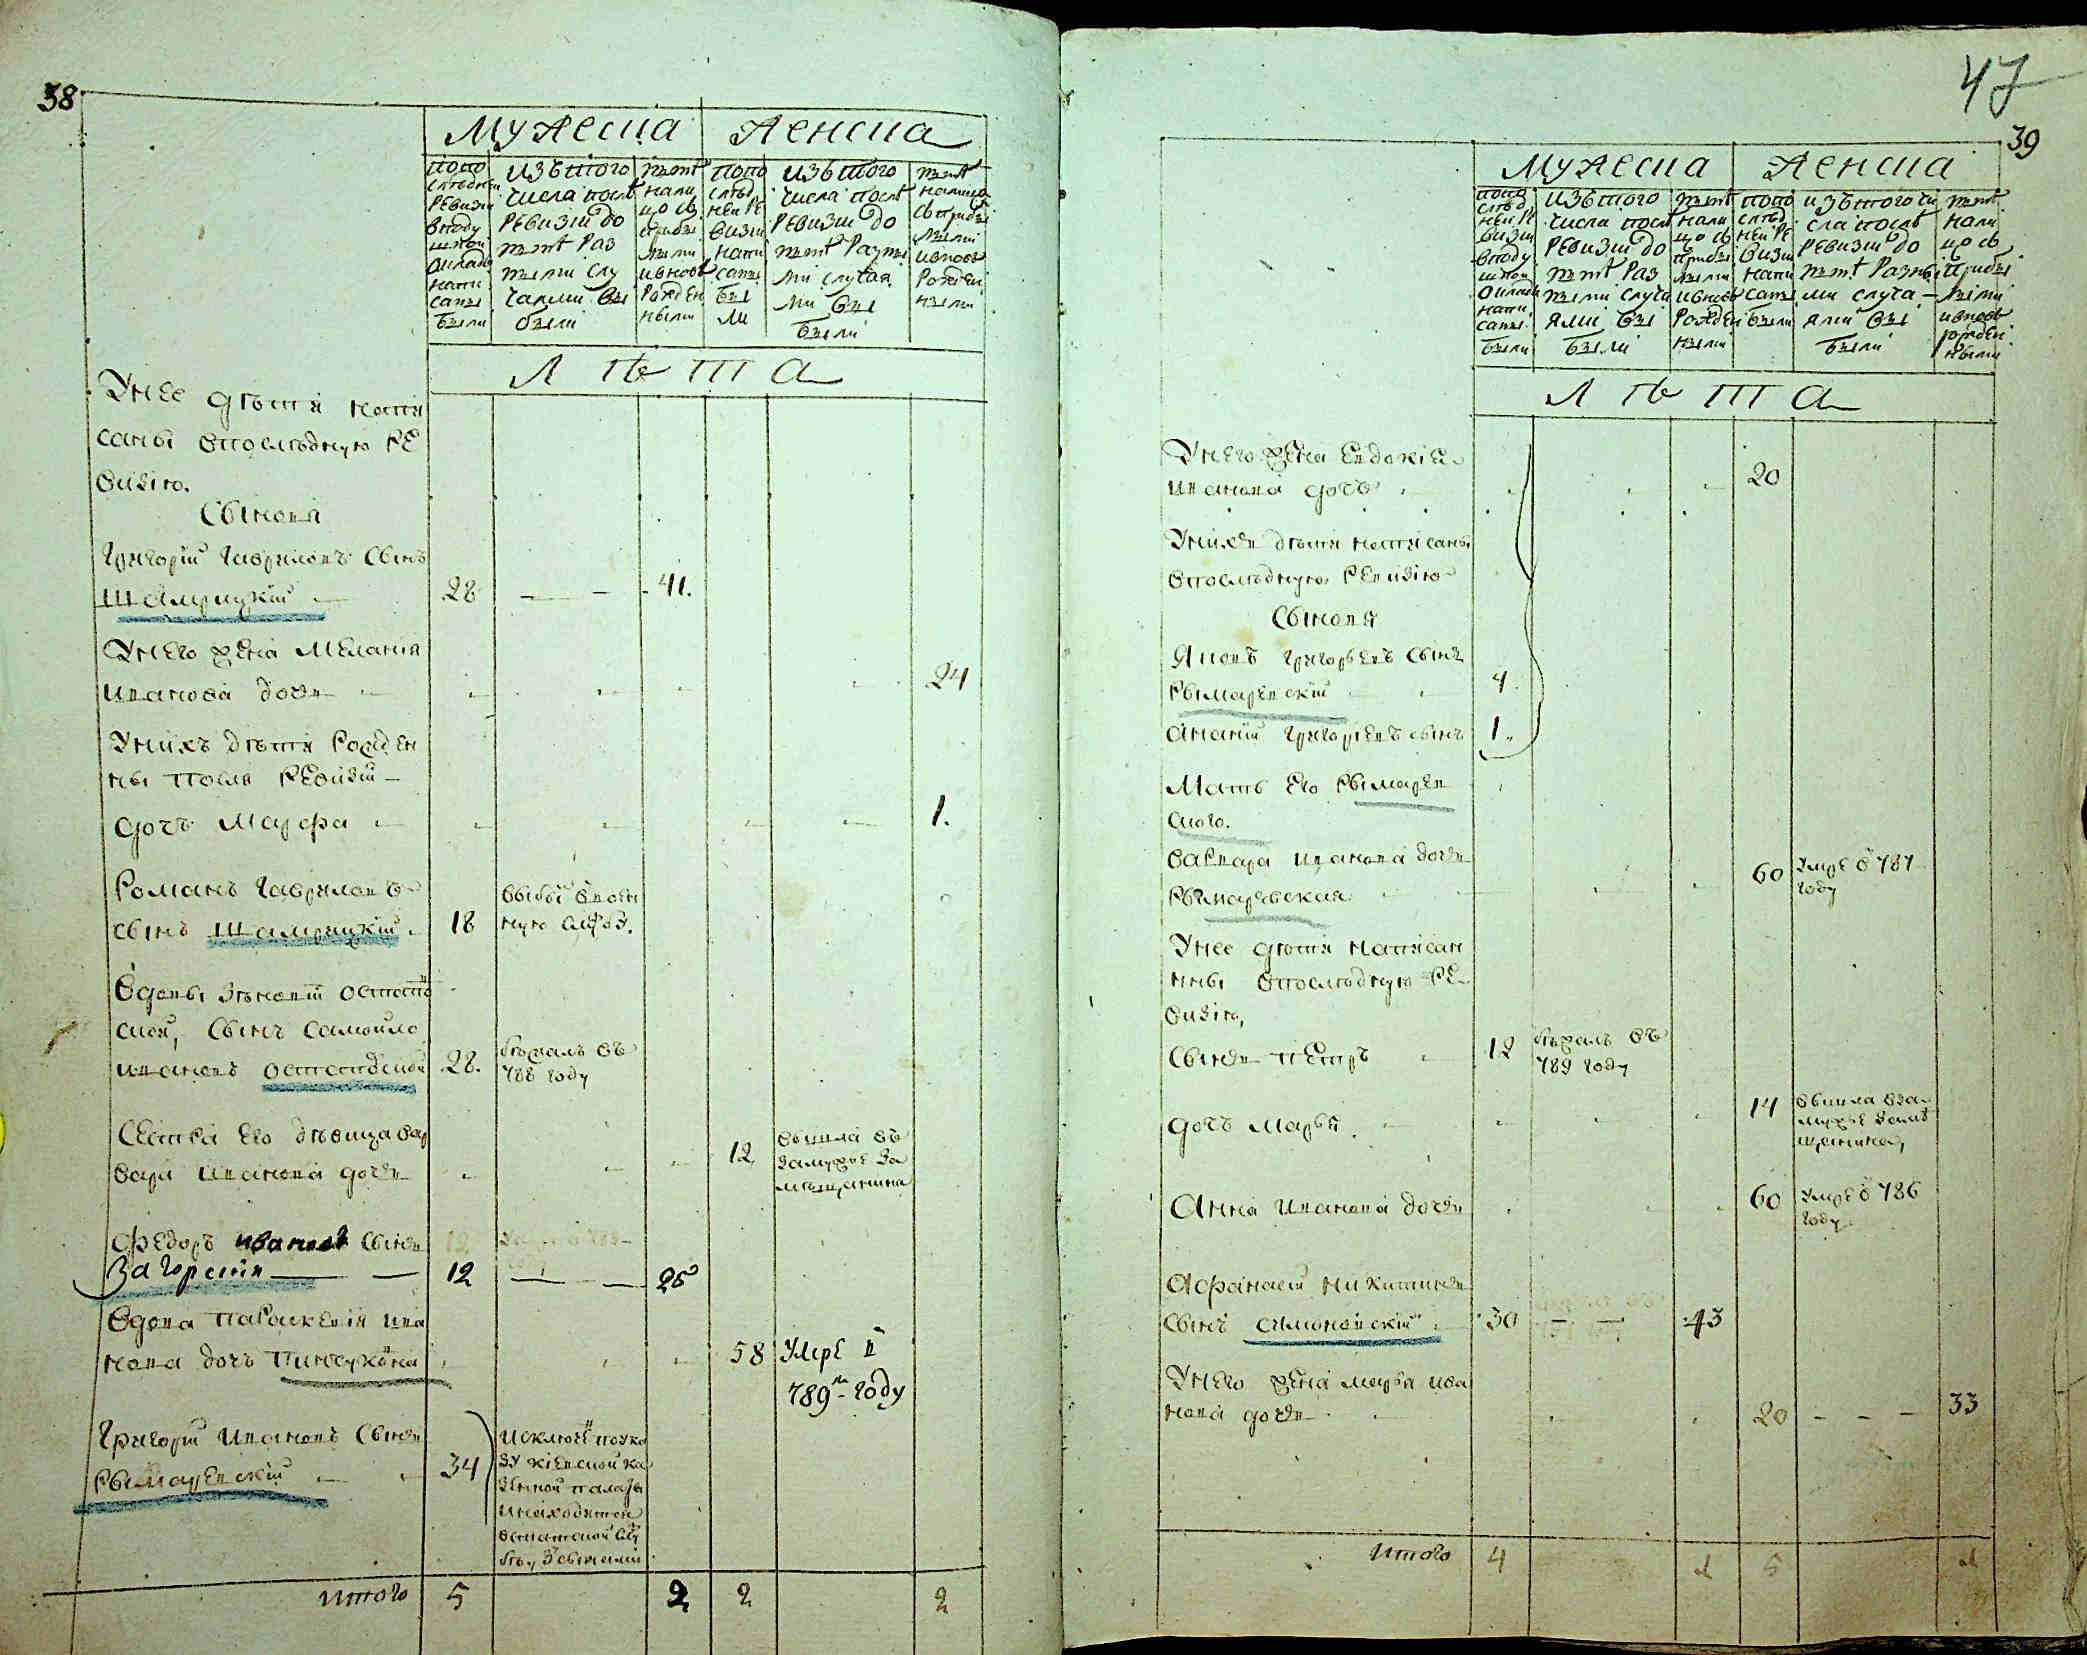 38
Мужеска
Женска
попо
следней
ревизии
в году
шной
окладъ
напи
саны
были
изъ того
числа после
ревизии до
ныне раз
ными слу
чаями вы
были
ныне
нали
цо съ
прибы
лыми
и вновь
рожден
ными
попо
след
ней ре
визии
напи
саны
бы
ли
изъ того
числа после
ревизии до
ныне разны
ми случая
ми вы
были
ныне
налицо
съ прибы
лыми
и вновь
рожден
ными
Л ѣ т а
У нее дѣти напи
саны в последную ре
визию.
Сыновя
Григорий Гаврилов Сынъ
28 — — 41.
У него жена Мелания
Иванова дочь 24
У них дѣти рожден
ны после ревизии
дочь Марфа 1.
Романъ Гаврилов
сынъ 18
выбыл в воен
ную службу.
Вдовы
Сынъ Самойло
Иванов 28.
бежалъ въ
788 году
Сестра его девица Вар
вара Иванова дочь 12
вышла въ
замужье за
мещанина
Федоръ Иванов Сынъ
Загорский 12 — — 26
Вдова Параскевия Ива
нова дочь Пинчукова 58
умре в
789м году
Григорий Иванов Сынъ
Рымаревский 34
исключен по ука
зу киевской ка
зенной палаты
и находится
в штатской слу
жбе, з сынами
итого 5 2 2 2
47
39
Мужеска
Женска
попо
след
ней ре
визии
в году
шной
окладъ
напи
саны
были
изъ того
числа после
ревизии до
ныне раз
ными случа
ями вы
были
ныне
нали
цо съ
прибы
лыми
и вновь
рожден
ными
попо
след
ней ре
визии
напи
саны
были
изъ того чи
сла после
ревизии до
ныне разны
ми случа
ями вы
были
ныне
нали
цо съ
прибы
лыми
и вновь
рожден
ными
Л ѣ т а
У него жена Евдокия
Иванова дочь 20
У них дети написаны
в последную ревизию
Сыновя
Яковъ Григорьевъ Сынъ
Рымаревский 4
Ананий Григорьевъ сынъ 1.
Мать его Рымарев
ского.
Варвара Иванова дочь
Рымаревская 60
умре в 787
году
У нее дети написан
ны в последную ре
визию,
Сынъ Петръ 12
бежалъ въ
789 году
дочь Марья 14
вышла в за
мужье за ме
щанина,
Анна Иванова дочь 60
умре в 786
году
Афанасий Никитинъ
Сынъ Симоновский 30 — — 43
У него жена Марья Ива
нова дочь 20 - - - 33
итого 4 1 5 1